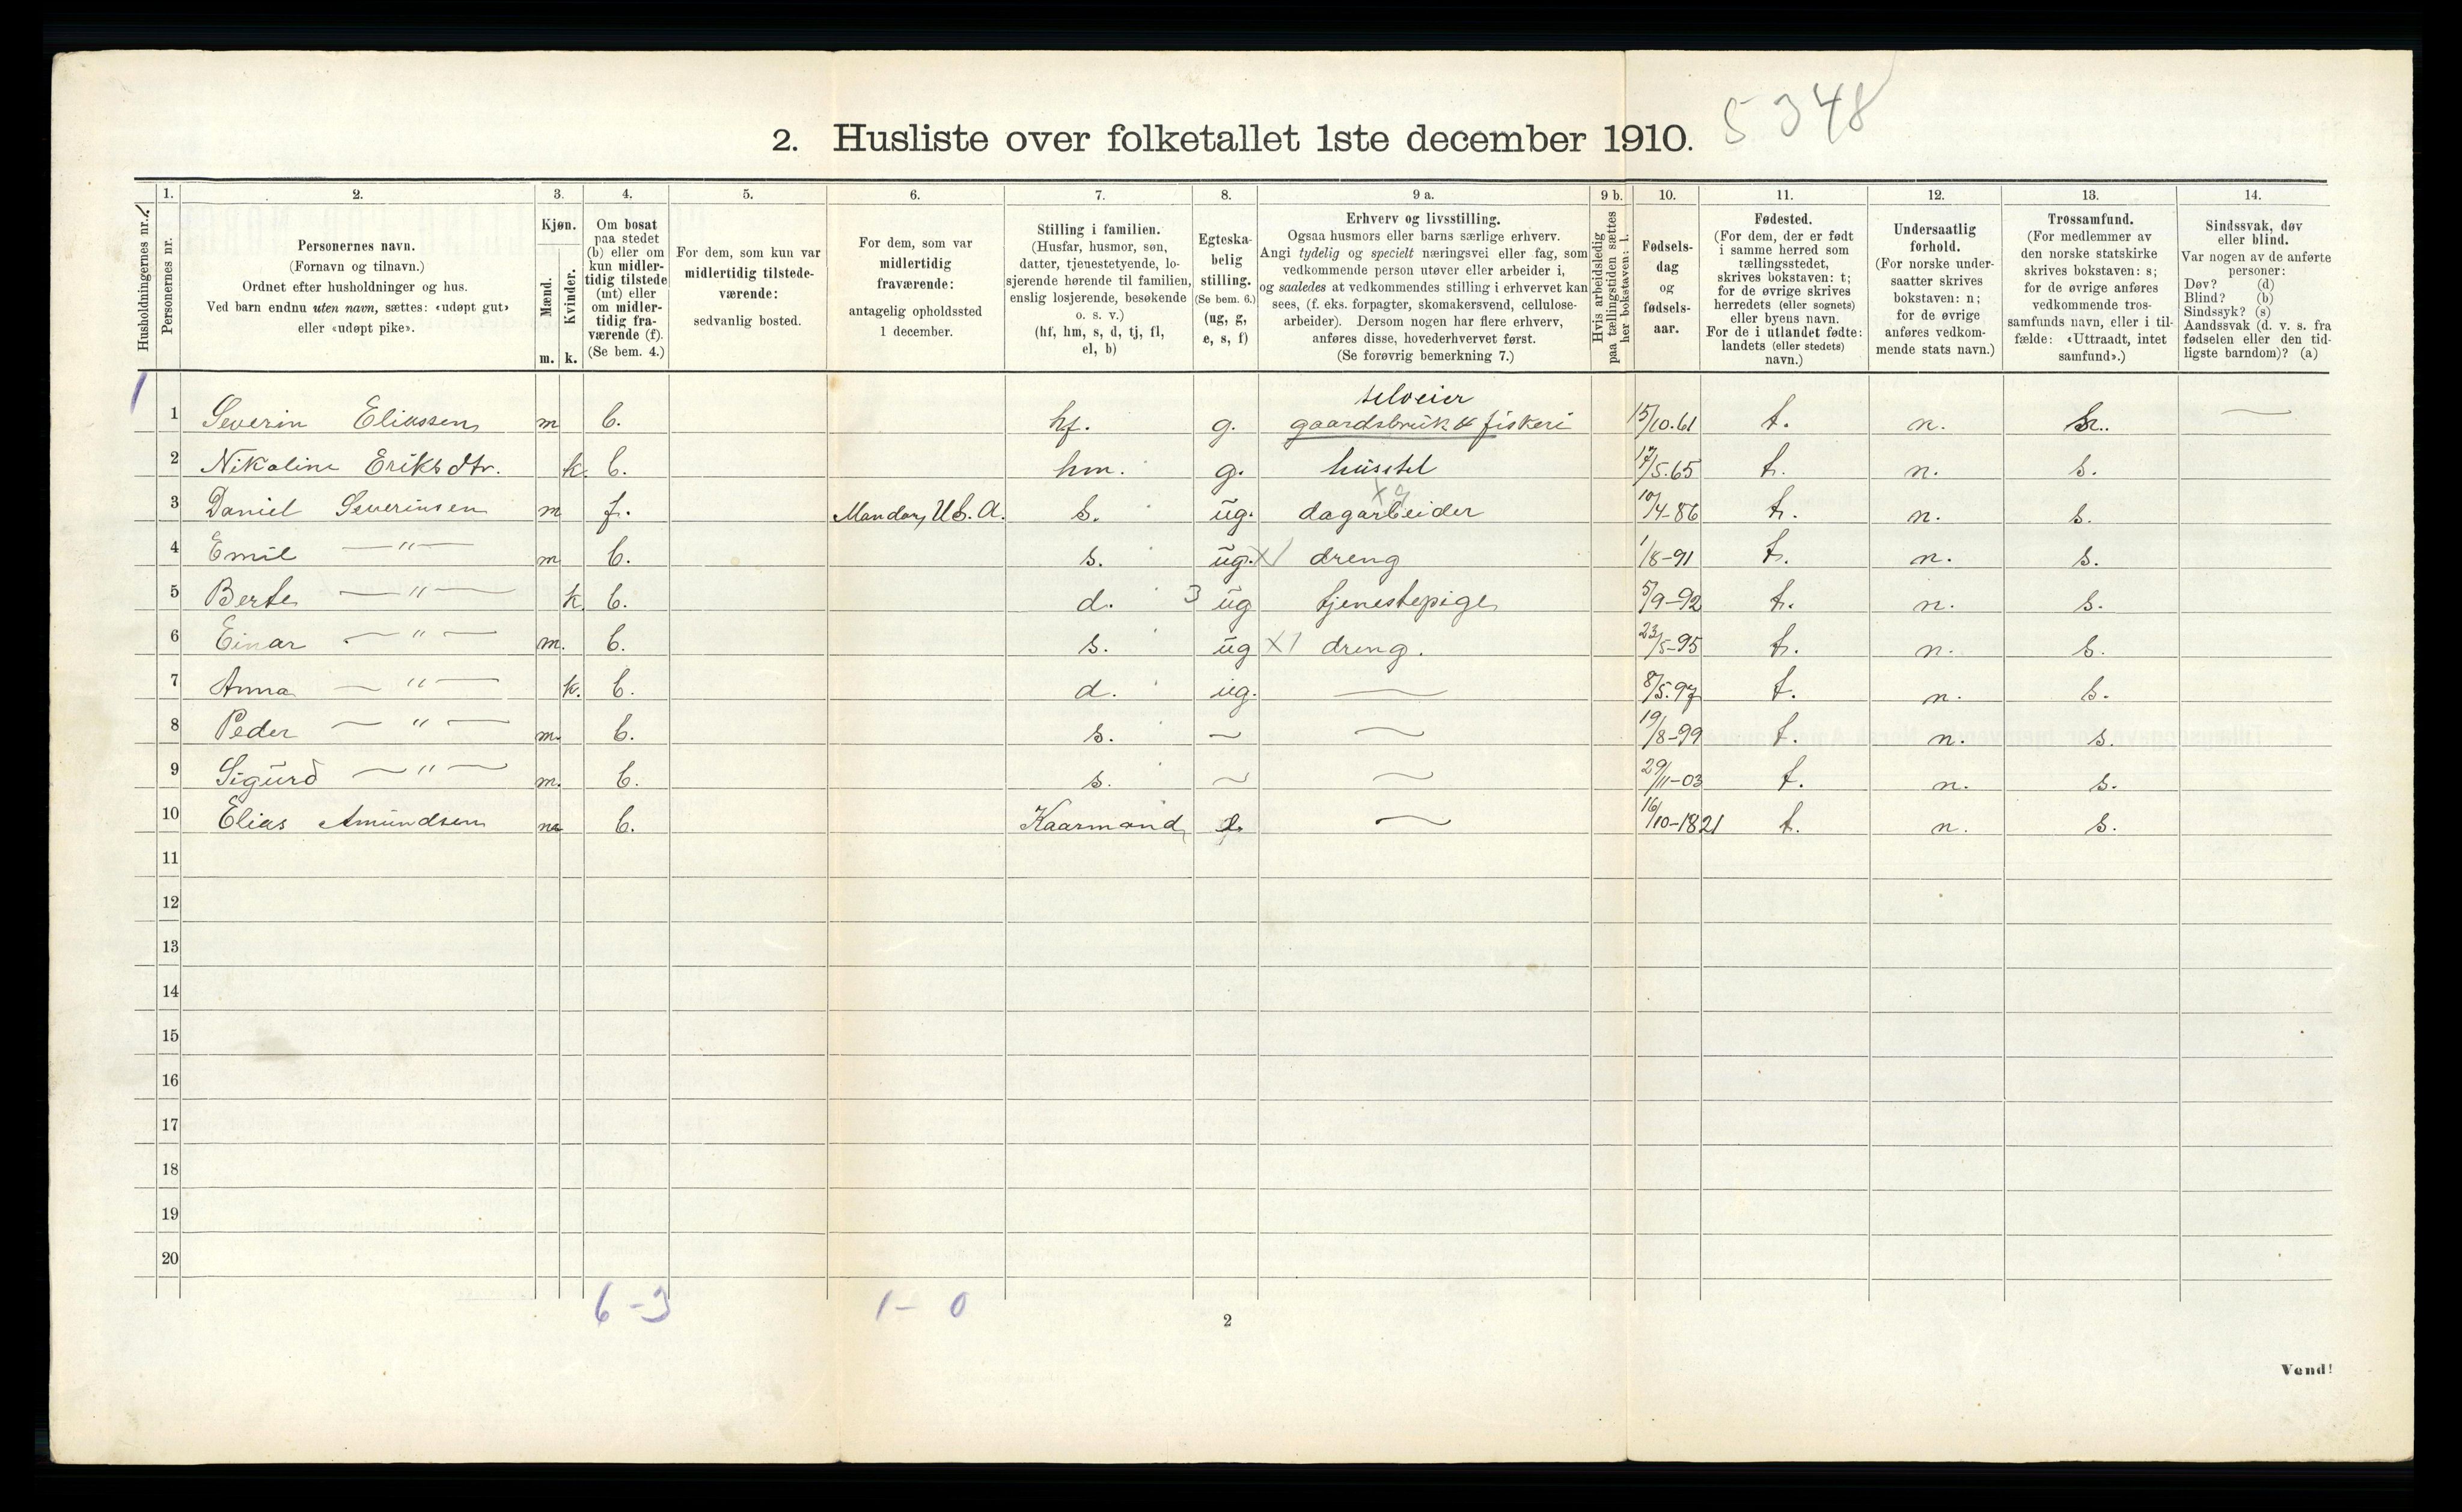 5348
2. Husliste over folketallet 1ste december 1910.
Husholdningernes nr.
1. Personernes nr.
2. Personernes navn.
(Fornavn og tilnavn.)
Ordnet efter husholdninger og hus.
Ved barn endnu uten navn, sættes: «udøpt gut»
eller «udøpt pike».
3. Kjøn.
Mænd. m.
Kvinder. k.
4. Om bosat
paa stedet
(b) eller om
kun midler-
tidig tilstede
(mt) eller
om midler-
tidig fra-
værende (f).
(Se bem. 4.)
5. For dem, som kun var
midlertidig tilstede-
værende:
sedvanlig bosted.
6. For dem, som var
midlertidig
fraværende:
antagelig opholdssted
1 december.
7. Stilling i familien.
(Husfar, husmor, søn,
datter, tjenestetyende, lo-
sjerende hørende til familien,
enslig losjerende, besøkende
o. s. v.)
(hf, hm, s, d, tj, fl,
el, b)
8. Egteska-
belig
stilling.
(Se bem. 6.)
(ug, g,
e, s, f)
9 a. Erhverv og livsstilling.
Ogsaa husmors eller barns særlige erhverv.
Angi tydelig og specielt næringsvei eller fag, som
vedkommende person utøver eller arbeider i,
og saaledes at vedkommendes stilling i erhvervet kan
sees, (f. eks. forpagter, skomakersvend, cellulose-
arbeider). Dersom nogen har flere erhverv,
anføres disse, hovederhvervet først.
(Se forøvrig bemerkning 7.)
9 b. Hvis arbeidsledig
paa tællingstiden sættes
her bokstaven: l.
10. Fødsels-
dag
og
fødsels-
aar.
11. Fødested.
(For dem, der er født
i samme herred som
tællingsstedet,
skrives bokstaven: t;
for de øvrige skrives
herredets (eller sognets)
eller byens navn.
For de i utlandet fødte:
landets (eller stedets)
navn.)
12. Undersaatlig
forhold.
(For norske under-
saatter skrives
bokstaven: n;
for de øvrige
anføres vedkom-
mende stats navn.)
13. Trossamfund.
(For medlemmer av
den norske statskirke
skrives bokstaven: s;
for de øvrige anføres
vedkommende tros-
samfunds navn, eller i til-
fælde: «Uttraadt, intet
samfund».)
14. Sindssvak, døv
eller blind.
Var nogen av de anførte
personer:
Døv? (d)
Blind? (b)
Sindssyk? (s)
Aandssvak (d. v. s. fra
fødselen eller den tid-
ligste barndom)? (a)
selveier
1 1 Severin Eliassen m b. hf. g. gaardsbruk & fiskeri 15/10.61 t. n. s. —
2 Nikoline Eriksdtr. k. b. hm. g. husstel 17/5.65 t. n. s.
3 Daniel Severinsen m f. Mandan, U.S.A. s. ug. dagarbeider 10/4-86 t. n. s.
4 Emil — " — m b. s. ug. X1 dreng 1/8-91 t. n. s.
5 Berte — " — k. b. d. 3 ug tjenestepige 5/9-92 t. n. s.
6 Einar — " — m. b. s. ug X1 dreng. 23/5-95 t. n. s.
7 Anna — " — k. b. d. ug. — 8/5.97 t. n. s.
8 Peder — " — m. b. s. — — 19/8-99 t. n. s.
9 Sigurd — " — m. b. s. — — 29/11-03 t. n. s.
10 Elias Amundsen m b. Kaarmand — 16/10-1821 t. n. s.
11
12
13
14
15
16
17
18
19
20
6-3 1-0
2
Vend!